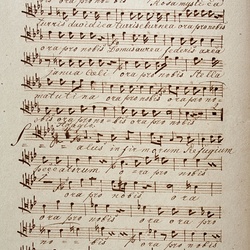 ora pro nobis Rosa mystica
turris davidica Turris eburnea ora pro nobis
ora pro nobis Domus aurea federis arca
janua Cæli ora pro nobis Stella
matutina ora pro nobis ora pro no-
bis ora pro no-bis ora pro nobis
Salus infirmorum Refugium
peccatorum o-ra pro nobis
ora pro nobis ora
ora pro nobis ora pro
no-bis ora pro nobis